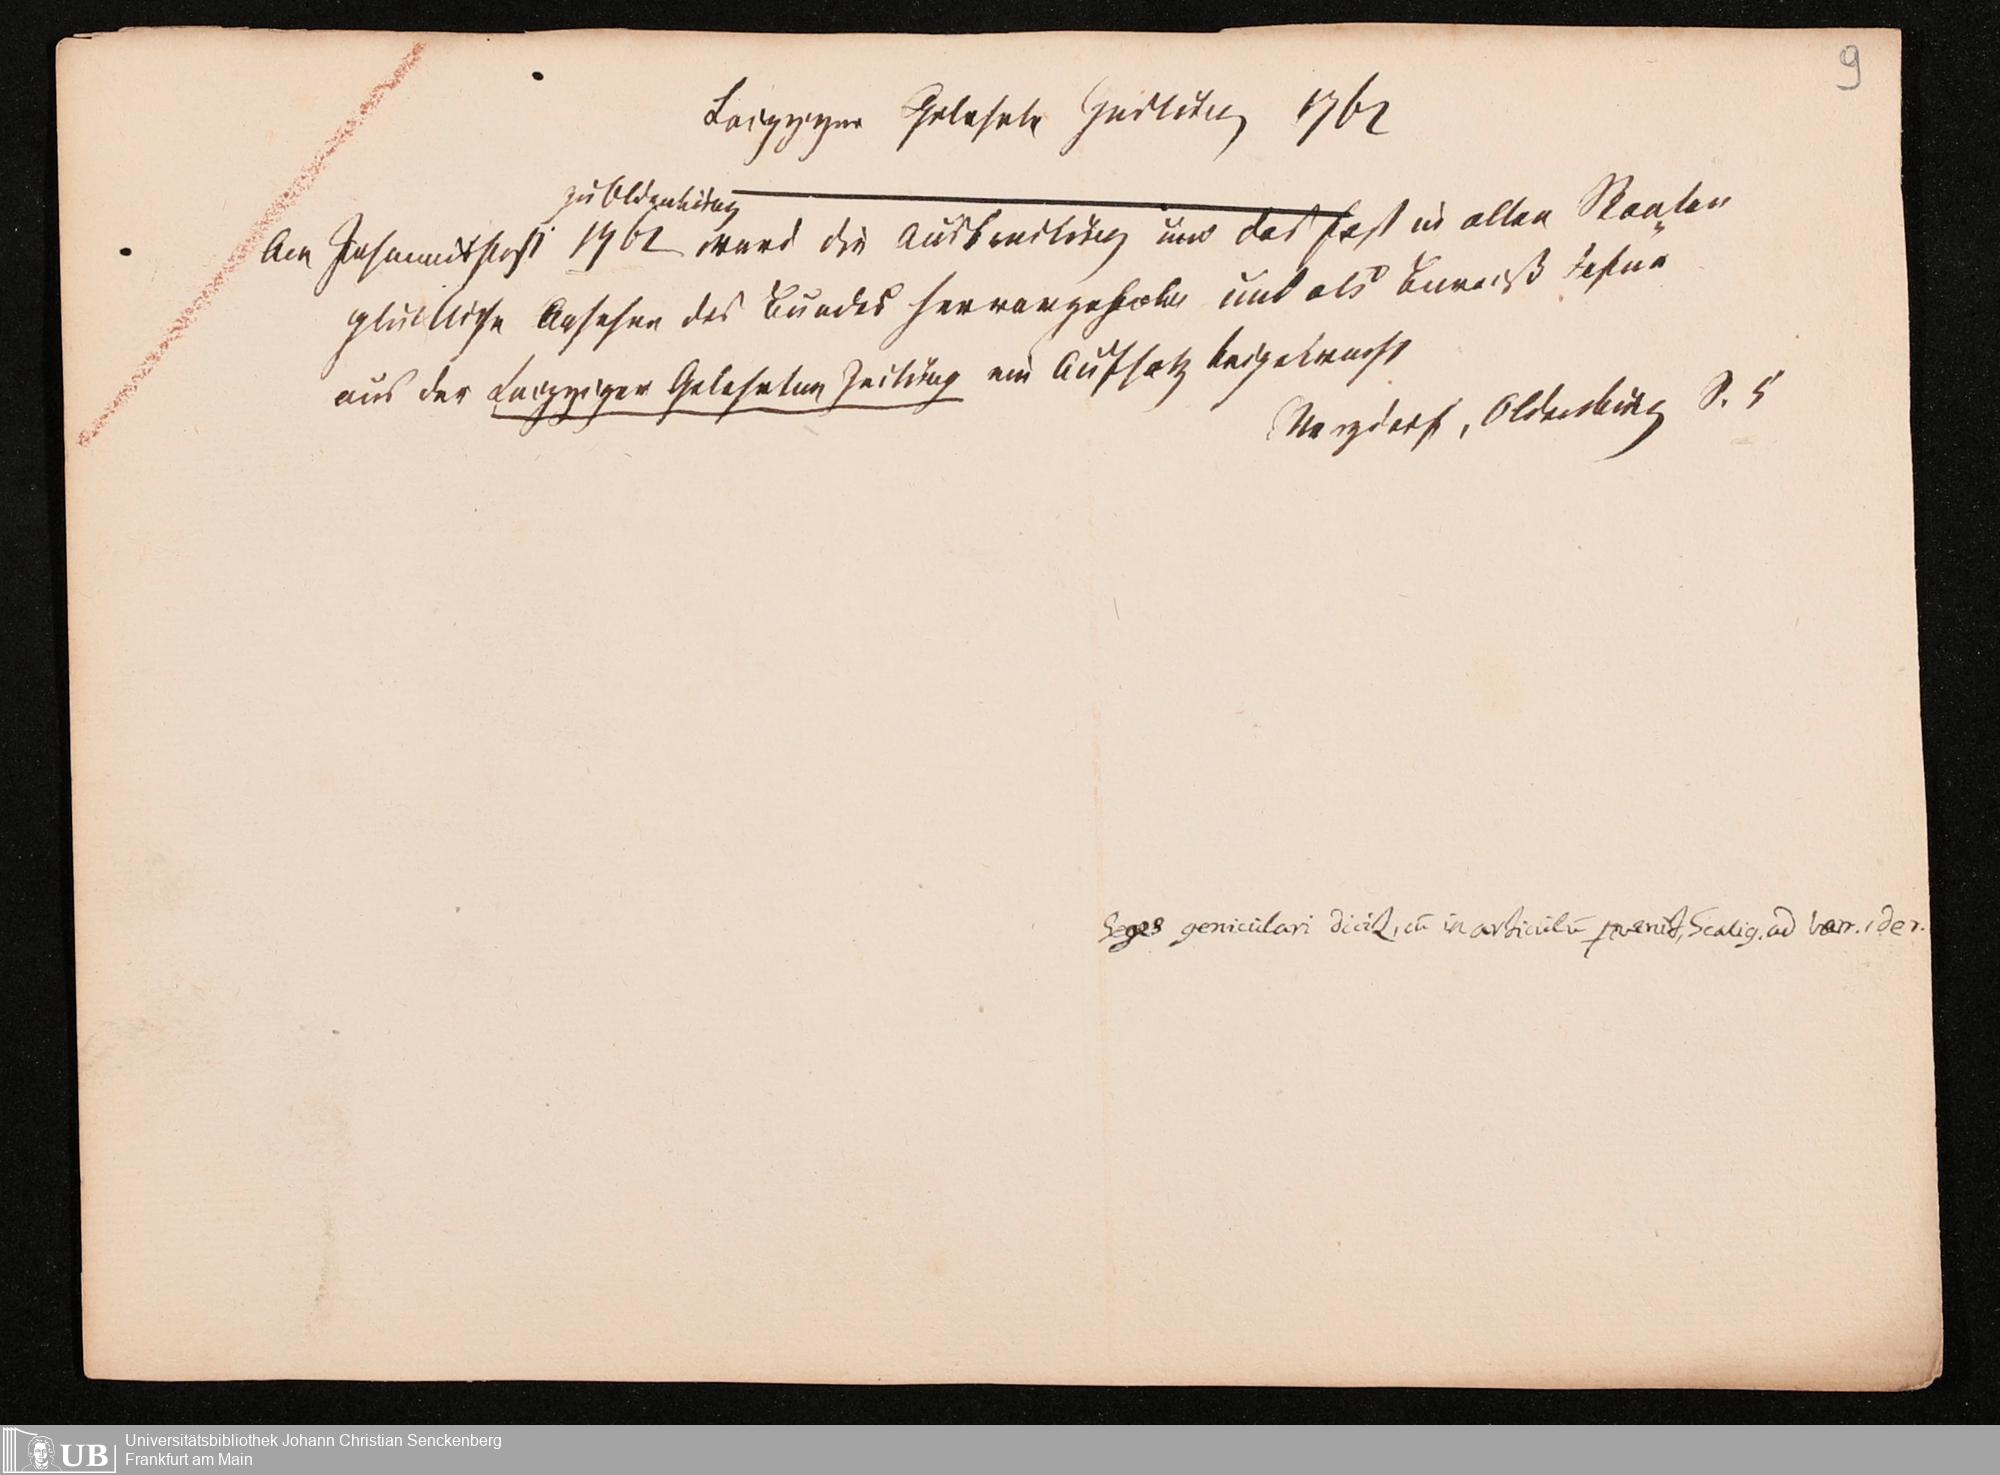 9
Leipziger Gelehrte Zeitung 1762
zu Oldenburg
Am Johannisfest 1762 ward die Ausbreitung und das fast in allen Staaten
glückliche Ansehen des Bundes hervorgehoben und als Beweiß dessen
aus der Leipziger Gelehrten Zeitung ein Aufsatz beigebracht
Merzdorf, Oldenburg S. 5
Seges geniculari dicit, cū in articulū pvenit, Scalig. ad Varr.
UB
Universitätsbibliothek Johann Christian Senckenberg
Frankfurt am Main